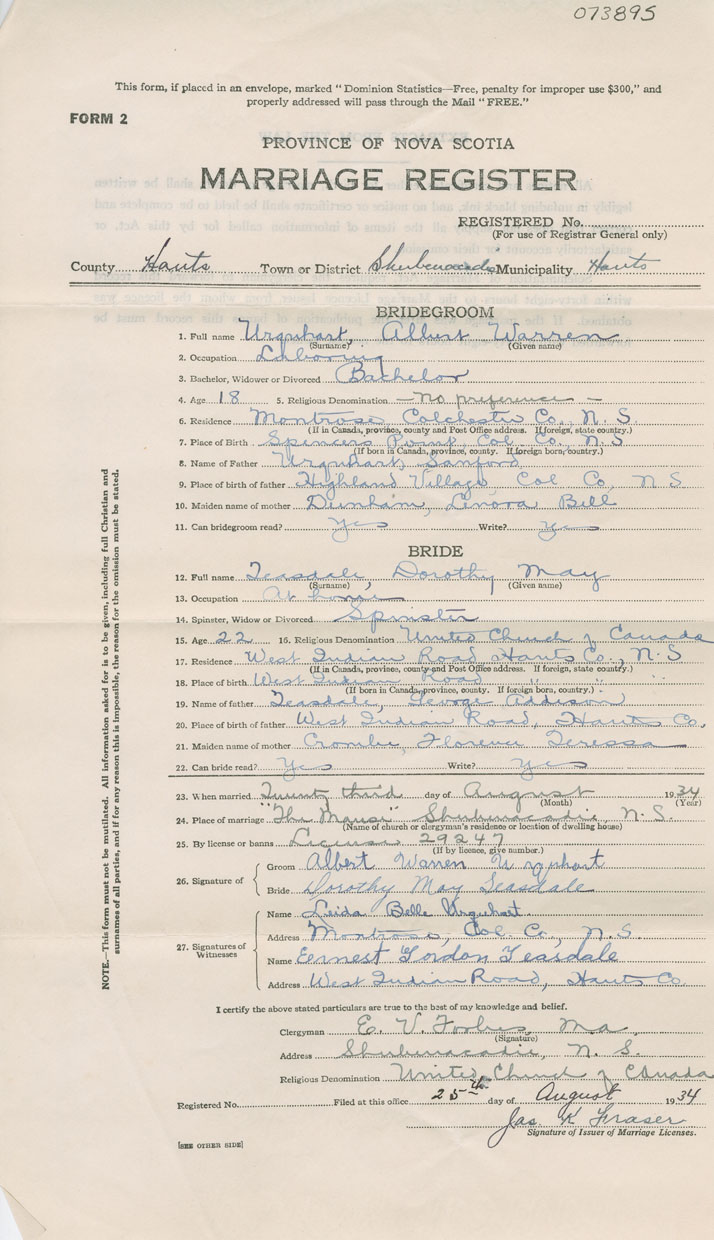 073895
This form, if placed in an envelope, marked "Dominion Statistics—Free, penalty for improper use $300," and
properly addressed will pass through the Mail "FREE."
FORM 2
PROVINCE OF NOVA SCOTIA
MARRIAGE REGISTER
REGISTERED No.
(For use of Registrar General only)
County Hants Town or District Shubenacadie Municipality Hants
BRIDEGROOM
1. Full name Urquhart, Albert Warren
(Surname) (Given name)
2. Occupation Laboring
3. Bachelor, Widower or Divorced Bachelor
4. Age 18 5. Religious Denomination — no preference —
6. Residence Montrose Colchester Co., N. S.
(If in Canada, province, county and Post Office address. If foreign, state country.)
7. Place of Birth Spencers Point, Col. Co., N. S
(If born in Canada, province, county. If foreign born, country.)
8. Name of Father Urquhart, Sanford
9. Place of birth of father Highland Village Col Co, N S
10. Maiden name of mother Dunham, Lenora Bell
11. Can bridegroom read? Yes Write? Yes
BRIDE
12. Full name Teasdale, Dorothy May
(Surname) (Given name)
13. Occupation At home
14. Spinster, Widow or Divorced Spinster
15. Age 22 16. Religious Denomination United Church of Canada
17. Residence West Indian Road, Hants Co., N. S
(If in Canada, province, county and Post Office address. If foreign, state country.)
18. Place of birth West Indian Road " " "
(If born in Canada, province, county. If foreign born, country.)
19. Name of father Teasdale, George Addison
20. Place of birth of father West Indian Road, Hants Co.
21. Maiden name of mother Crombie, Florence Teressa
22. Can bride read? Yes Write? Yes
23. When married Twenty third day of August 1934
(Month) (Year)
24. Place of marriage "The Manse" Shubenacadie, N. S.
(Name of church or clergyman's residence or location of dwelling house)
25. By license or banns License 29247
(If by licence, give number.)
26. Signature of
Groom Albert Warren Urquhart
Bride Dorothy May Teasdale
27. Signatures of Witnesses
Name Leida Belle Urquhart
Address Montrose, Col. Co., N. S.
Name Eernest Gordon Teasdale
Address West Indian Road, Hants Co
I certify the above stated particulars are true to the best of my knowledge and belief.
Clergyman E. V. Forbes, Ma
(Signature)
Address Shubenacadie, N. S.
Religious Denomination United Church of Canada
Registered No. Filed at this office 25th day of August 1934
Jas K Fraser
Signature of Issuer of Marriage Licenses.
[SEE OTHER SIDE]
NOTE.—This form must not be mutilated. All information asked for is to be given, including full Christian and
surnames of all parties, and if for any reason this is impossible, the reason for the omission must be stated.